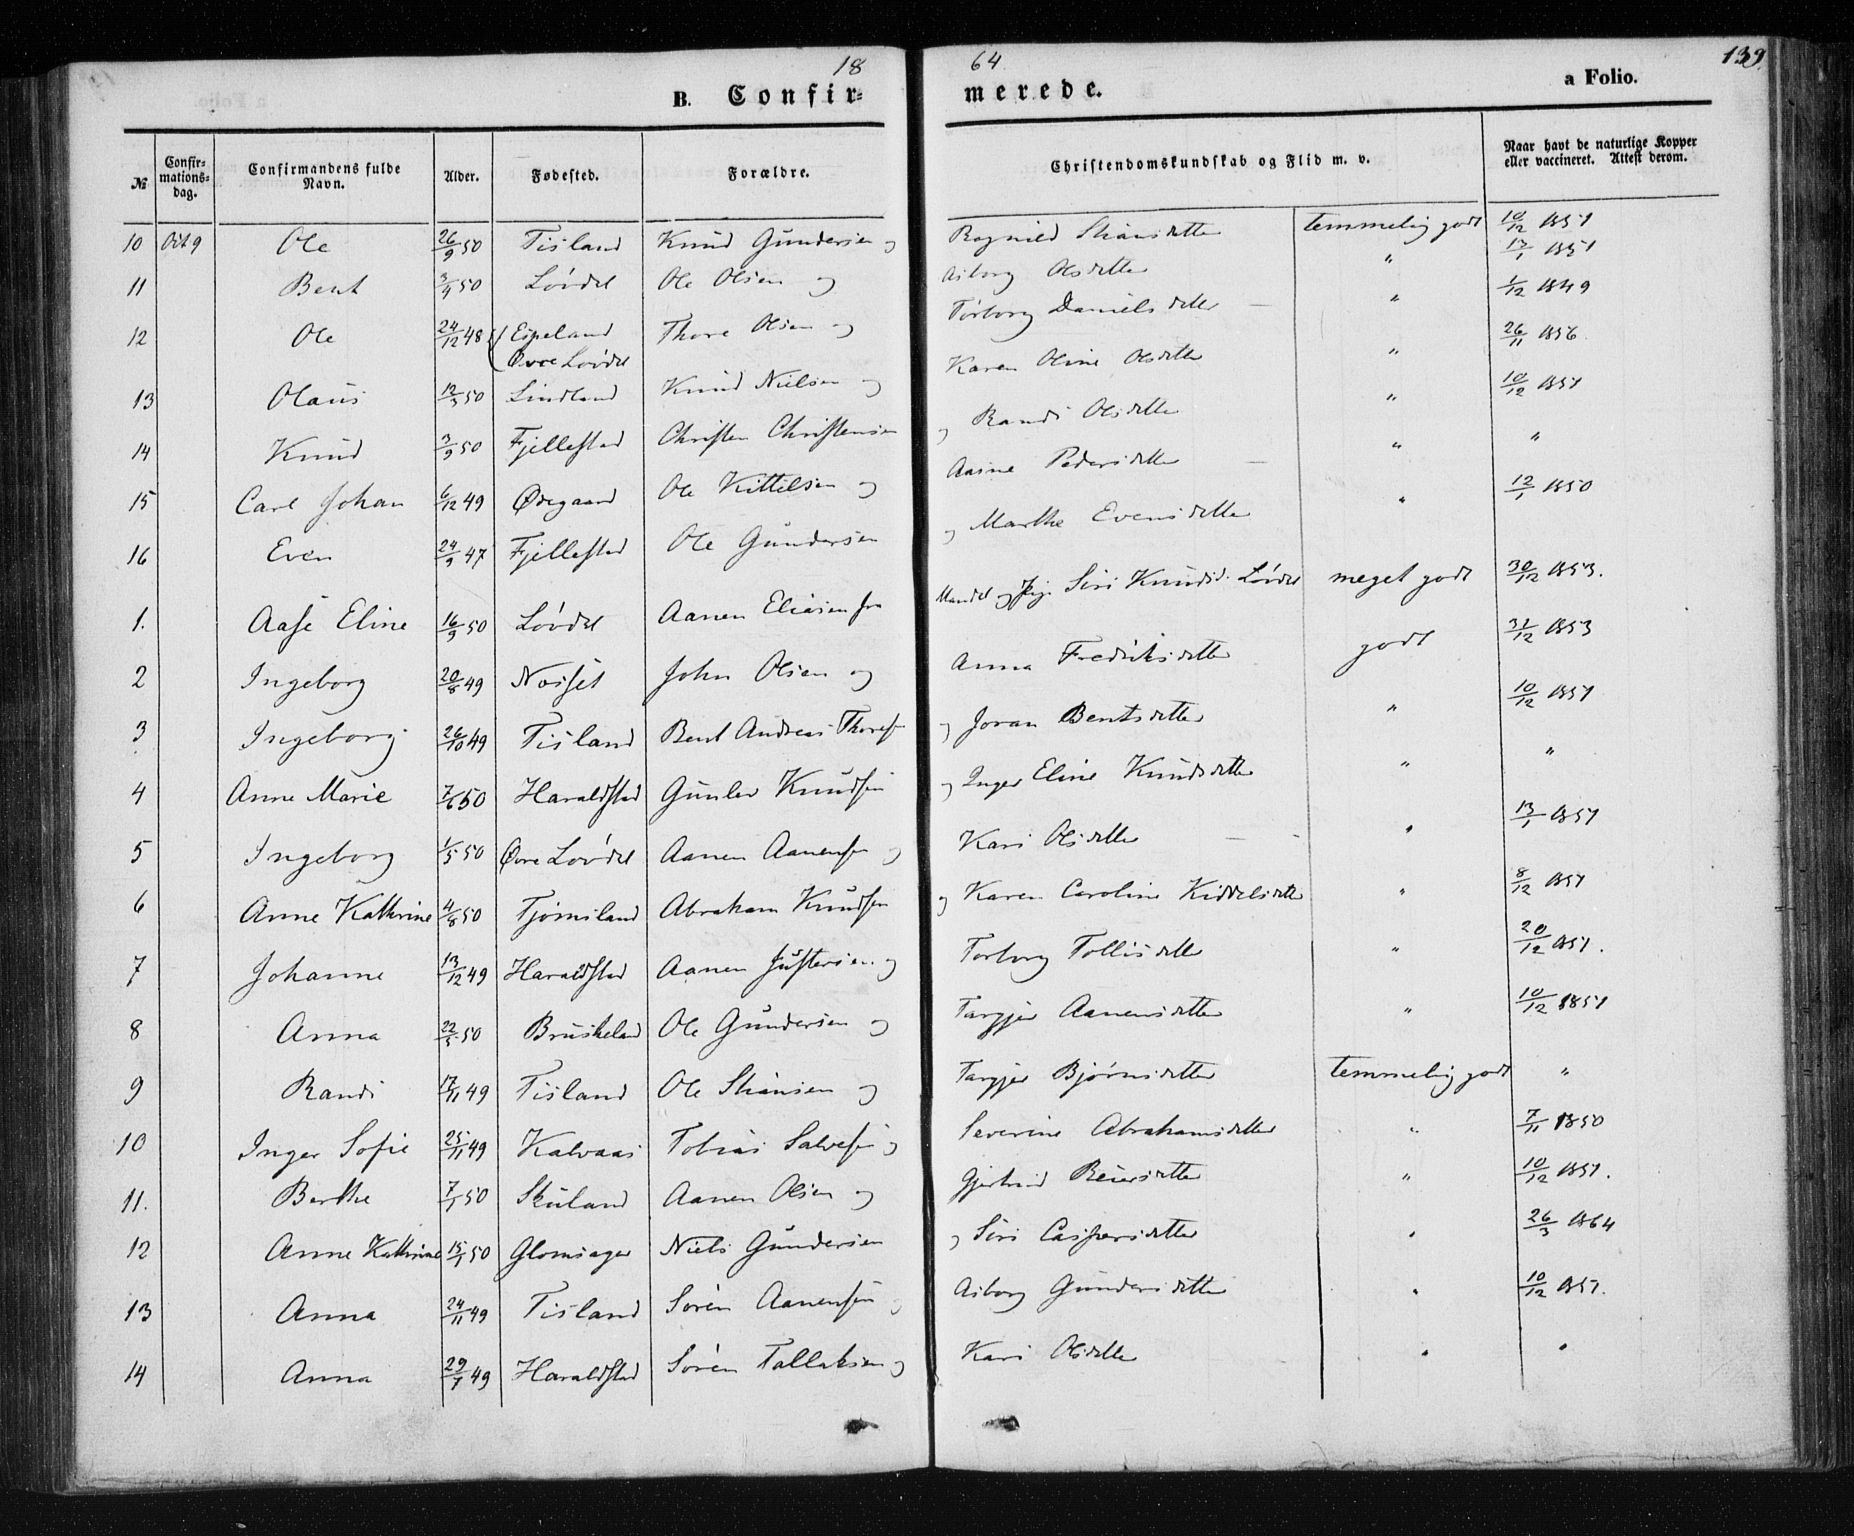 18 64 139
B. Confir- merede. a Folio.
№ Confir-mations-dag. Confirmandens fulde Navn. Alder. Fødested. Forældre. Christendomskundskab og Flid m. v. Naar havt de naturlige Kopper eller vaccineret. Attest derom.
10 Oct 9 Ole 26/9 50 Tisland Knud Gundersen og Ragnild Stiansdatter temmelig godt 10/12 1851
11 Bent 3/4 50 Løvdal Ole Olsen og Asborg Olsdatter " 13/1 1851
12 Ole 24/12 48 Espeland Øvre Løvdal Thore Olsen og Torborg Danielsdatter — " 1/12 1849
13 Olaus 12/3 50 Lindland Knud Nielsen og Karen Oline Olsdatter " 26/11 1856
14 Knud 3/9 50 Fjellestad Christen Christensen og Randi Olsdatter " 10/12 1851
15 Carl Johan 6/12 49 Ødegaard Ole Kittelsen og Aasine Pedersdatter — " "
16 Even 24/9 47 Fjellestad Ole Gundersen og Marthe Evensdatter " 12/1 1850
1. Aase Eline 16/9 50 Løvdal Aanen Eliasen fra Mandal og Pige Siri Knudsd. Løvdal meget godt 30/12 1853.
2 Ingeborg 20/8 49 Nøsset John Olsen og Anna Fredriksdatter godt 31/12 1853
3 Ingeborg 26/10 49 Tisland Bent Andreas Thores. og Joran Bentsdatter " 10/12 1851
4 Anne Marie 7/6 50 Haraldstad Gunlev Knudsen og Inger Eline Knudsdatter " "
5 Ingeborg 1/5 50 Øvre Løvdal Aanen Aanensen og Kari Olsdatter — " 13/1 1851
6 Anne Kathrine 4/8 50 Tjømsland Abraham Knudsen og Karen Caroline Kiddelsdatter " 8/12 1851
7 Johanne 13/12 49 Haraldstad Aanen Justesen og Torborg Tollisdatter " 20/12 1851.
8 Anna 22/5 50 Bruskeland Ole Gundersen og Targjer Aanensdatter " 10/12 1851
9 Randi 17/11 49 Tisland Ole Stiansen og Targjer Bjørnsdatter temmelig godt "
10 Inger Sofie 25/11 49 Kalvaas Tobias Salvesen og Severine Abrahamsdatter " 7/11 1850
11. Berthe 7/1 50 Skuland Aanen Olsen og Gjertrud Reiersdatter " 10/12 1851.
12 Anne Kathrine 15/1 50 Glomsager Niels Gundersen og Siri Caspersdatter " 26/3 1864
13 Anna 24/11 49 Tisland Søren Aanensen og Asborg Gundersdatter " 10/12 1851.
14 Anna 29/7 49 Haraldstad Søren Tallaksen og Kari Olsdatter " "